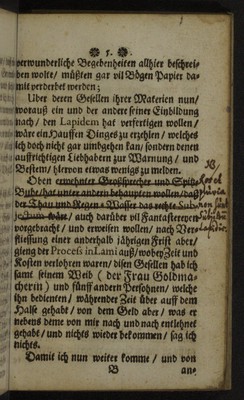 5.
verwunderliche Begebenheiten allhier beschrei-
ben wolte / müßten gar vil Bögen Papier da-
mit verderbet werden;
Uber deren Gesellen ihrer Materien nun /
worauß ein und der andere seiner Einbildung
nach / den Lapidem hat verfertigen wollen /
wäre ein Hauffen Dinges zu erzehlen / welches
ich doch nicht gar umbgehen kan / sondern denen
auffrichtigen Liebhabern zur Warnung / und
Bestem / hiervon etwas wenigs zu melden.
Oben ermehnter Großsprecher und
hat unter andern behaupten wollen / daß
der Thau und Regen-Wasser das rechte
wäre / auch darüber vil Fantastereyen
vorgebracht / und erweisen wollen / nach Ver-
fliessung einer anderthalb jährigen Frist aber /
gieng der Process in Lani auß / wobey Zeit und
Kosten verlohren waren / disen Gesellen hab ich
samt seinem Weib (der Frau Goldma-
cherin) und fünff andern Persohnen / welche
ihn bedienten / währender Zeit über auff dem
Halse gehabt / von dem Geld aber / was er
nebens deme von mir nach und nach entlehnet
gehabt / und nichts wieder bekommen / sag ich
nichts.
Damit ich nun weiter komme / und von
B
an-